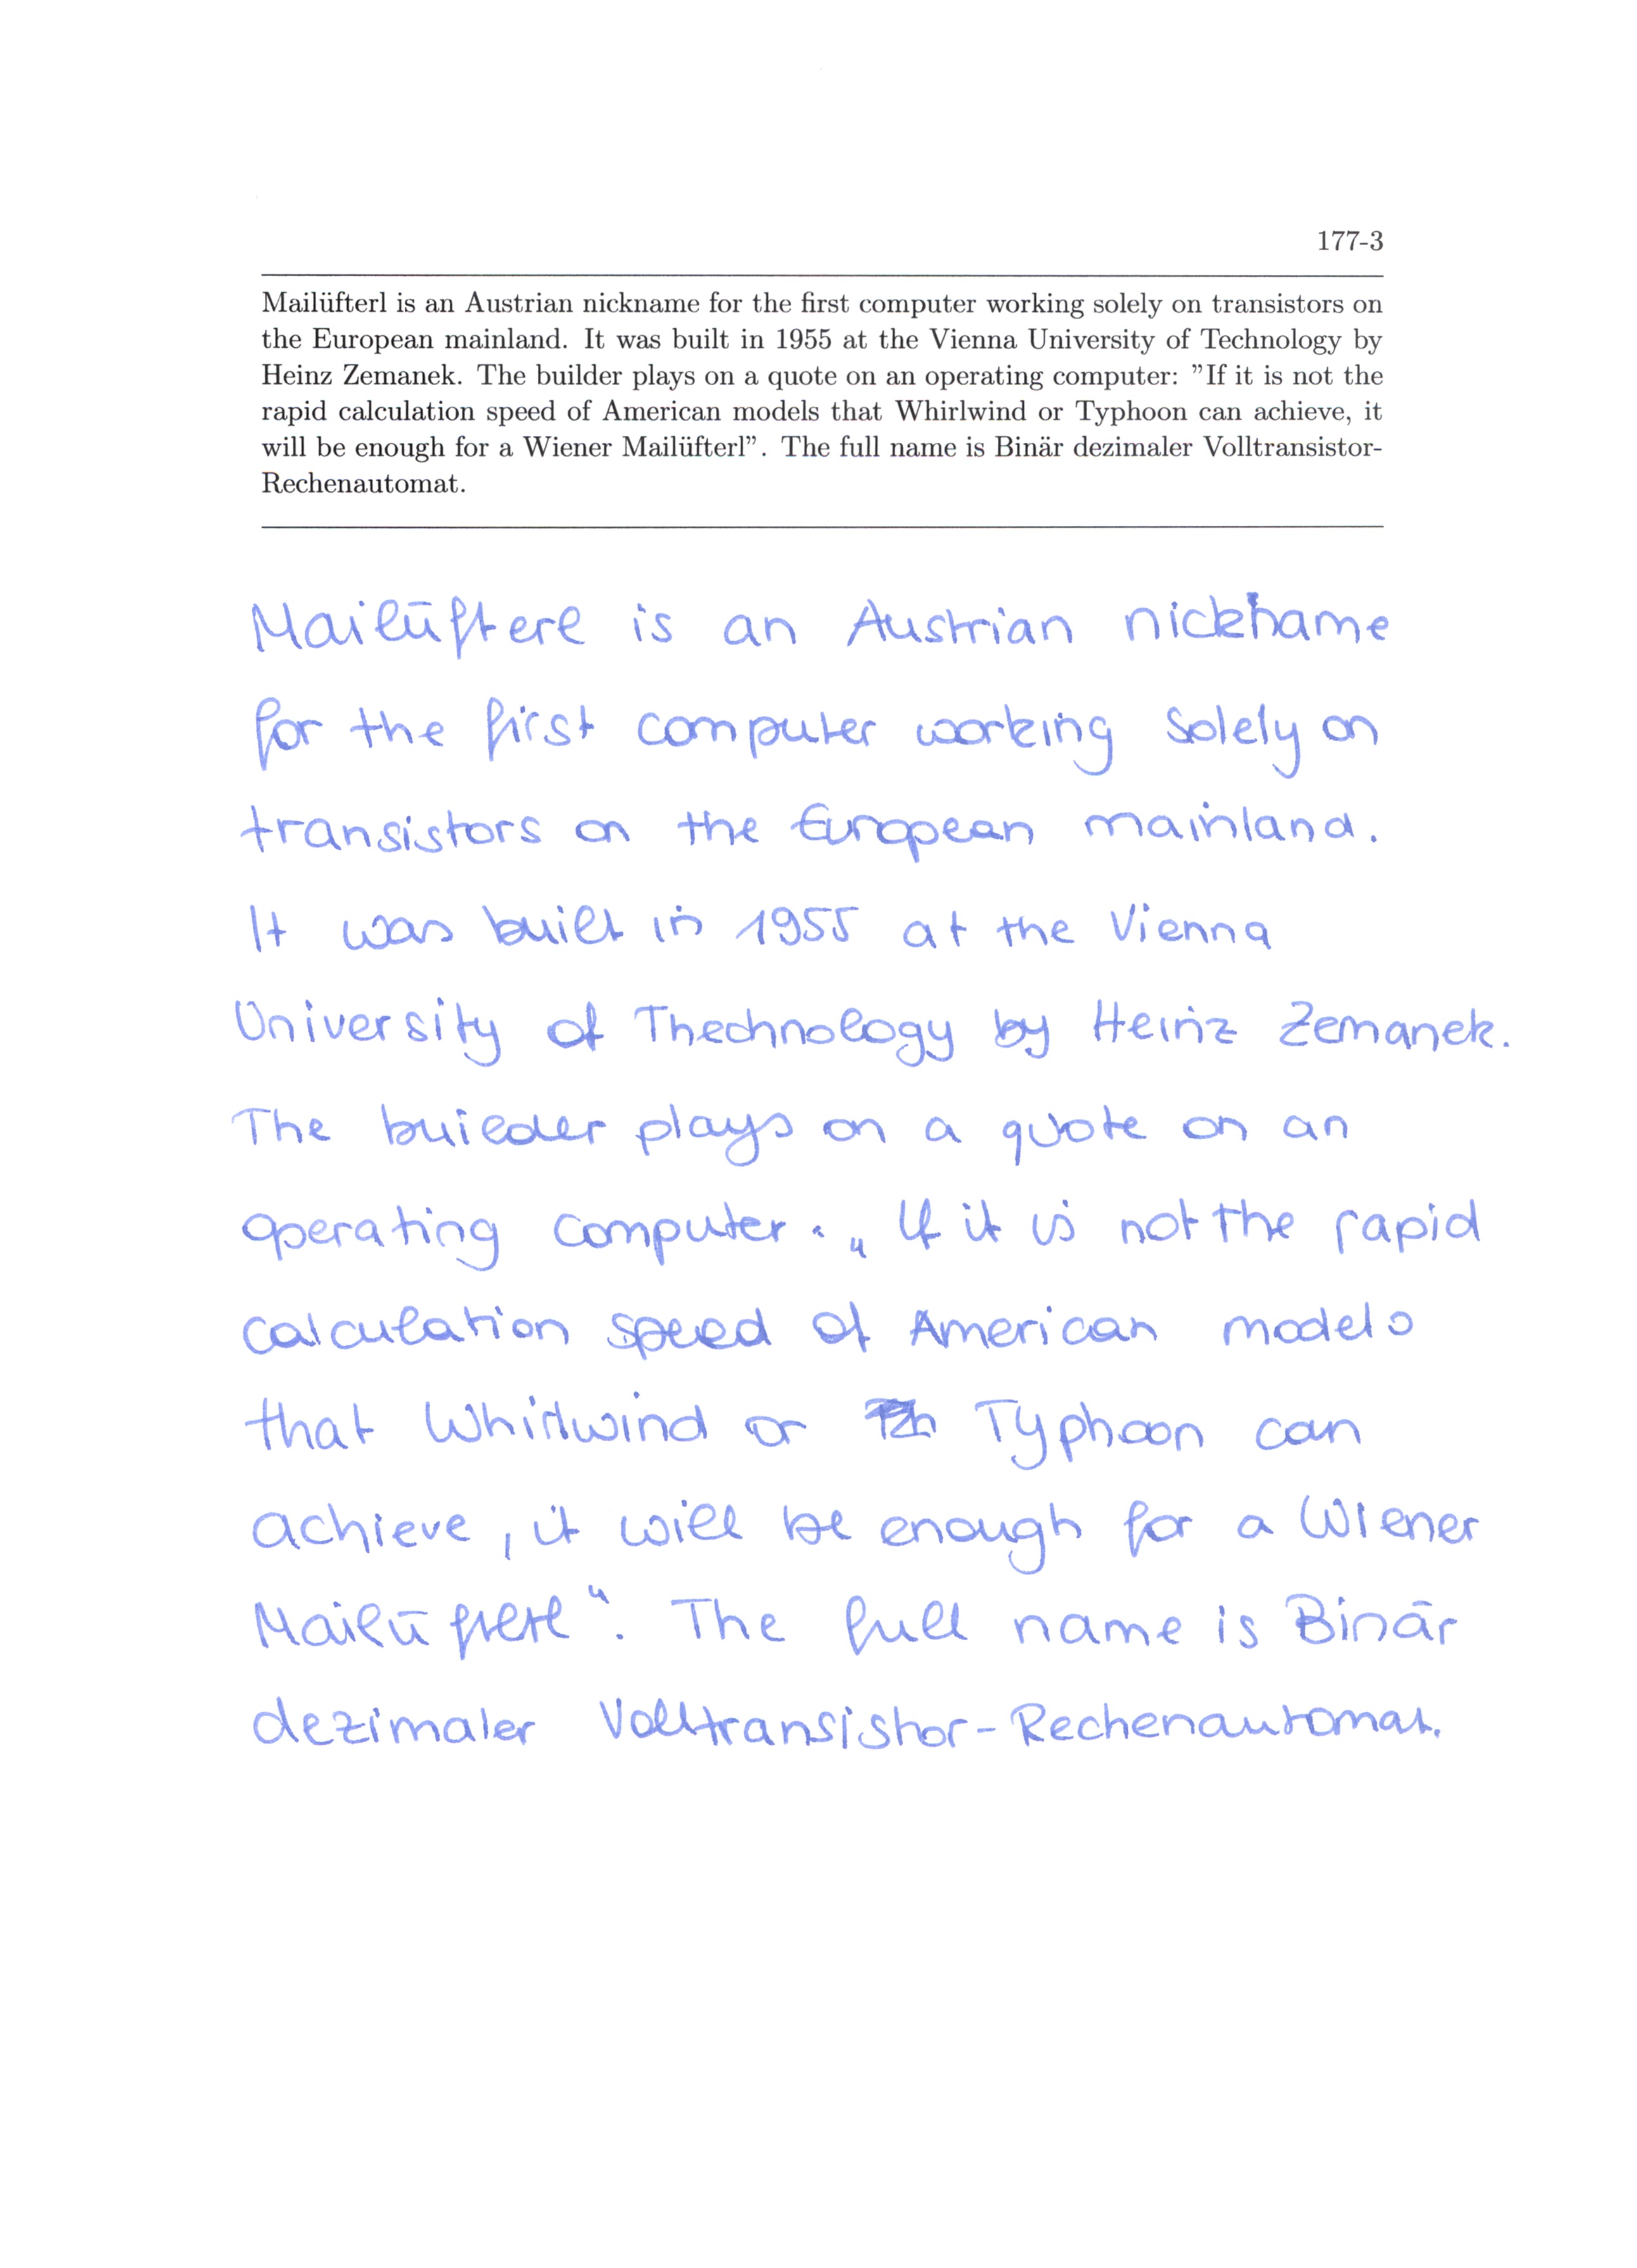 177-3
Mailüfterl is an Austrian nickname for the first computer working solely on transistors on
the European mainland. It was built in 1955 at the Vienna University of Technology by
Heinz Zemanek. The builder plays on a quote on an operating computer: ”If it is not the
rapid calculation speed of American models that Whirlwind or Typhoon can achieve, it
will be enough for a Wiener Mailüfterl”. The full name is Binär dezimaler Volltransistor-
Rechenautomat.
Mailüfterl is an Austrian nickname
for the first computer working solely on
transistors on the European mainland.
It was built in 1955 at the Vienna
University of Thechnology by Heinz Zemanek.
The builder plays on a quote on an
operating computer: „If it is not the rapid
calculation speed of American models
that Whirlwind or Typhoon can
achieve, it will be enough for a Wiener
Mailüfterl“. The full name is Binär
dezimaler Volltransistor-Rechenautomat.